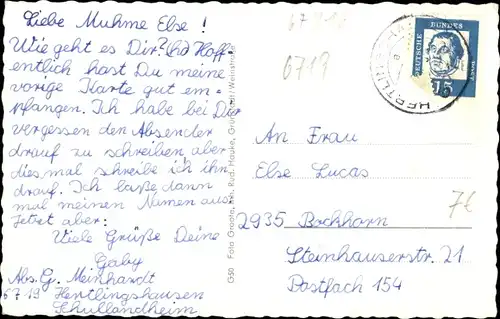 Liebe Muhme Else!
Wie geht es Dir? Hoff-
entlich hast Du meine
vorige Karte gut em-
pfangen. Ich habe bei Dir
vergessen den Absender
drauf zu schreiben aber
diesmal schreibe ich ihn
drauf. Ich laße dann
mal meinen Namen aus
Jetzt aber:
Viele Grüße Deine
Gaby
Abs. G. Meinhardt
67-19 Hertlingshausen
Schullandheim
G50 Foto Graafe, Inh. Rud. Hauke, Grünstadt/Weinstraße
6719
DEUTSCHE BUNDES
POST
15
HERTLINGSHAUSEN
An Frau
Else Lucas
7€
2935 Bockhorn
Steinhauserstr. 21
Postfach 154